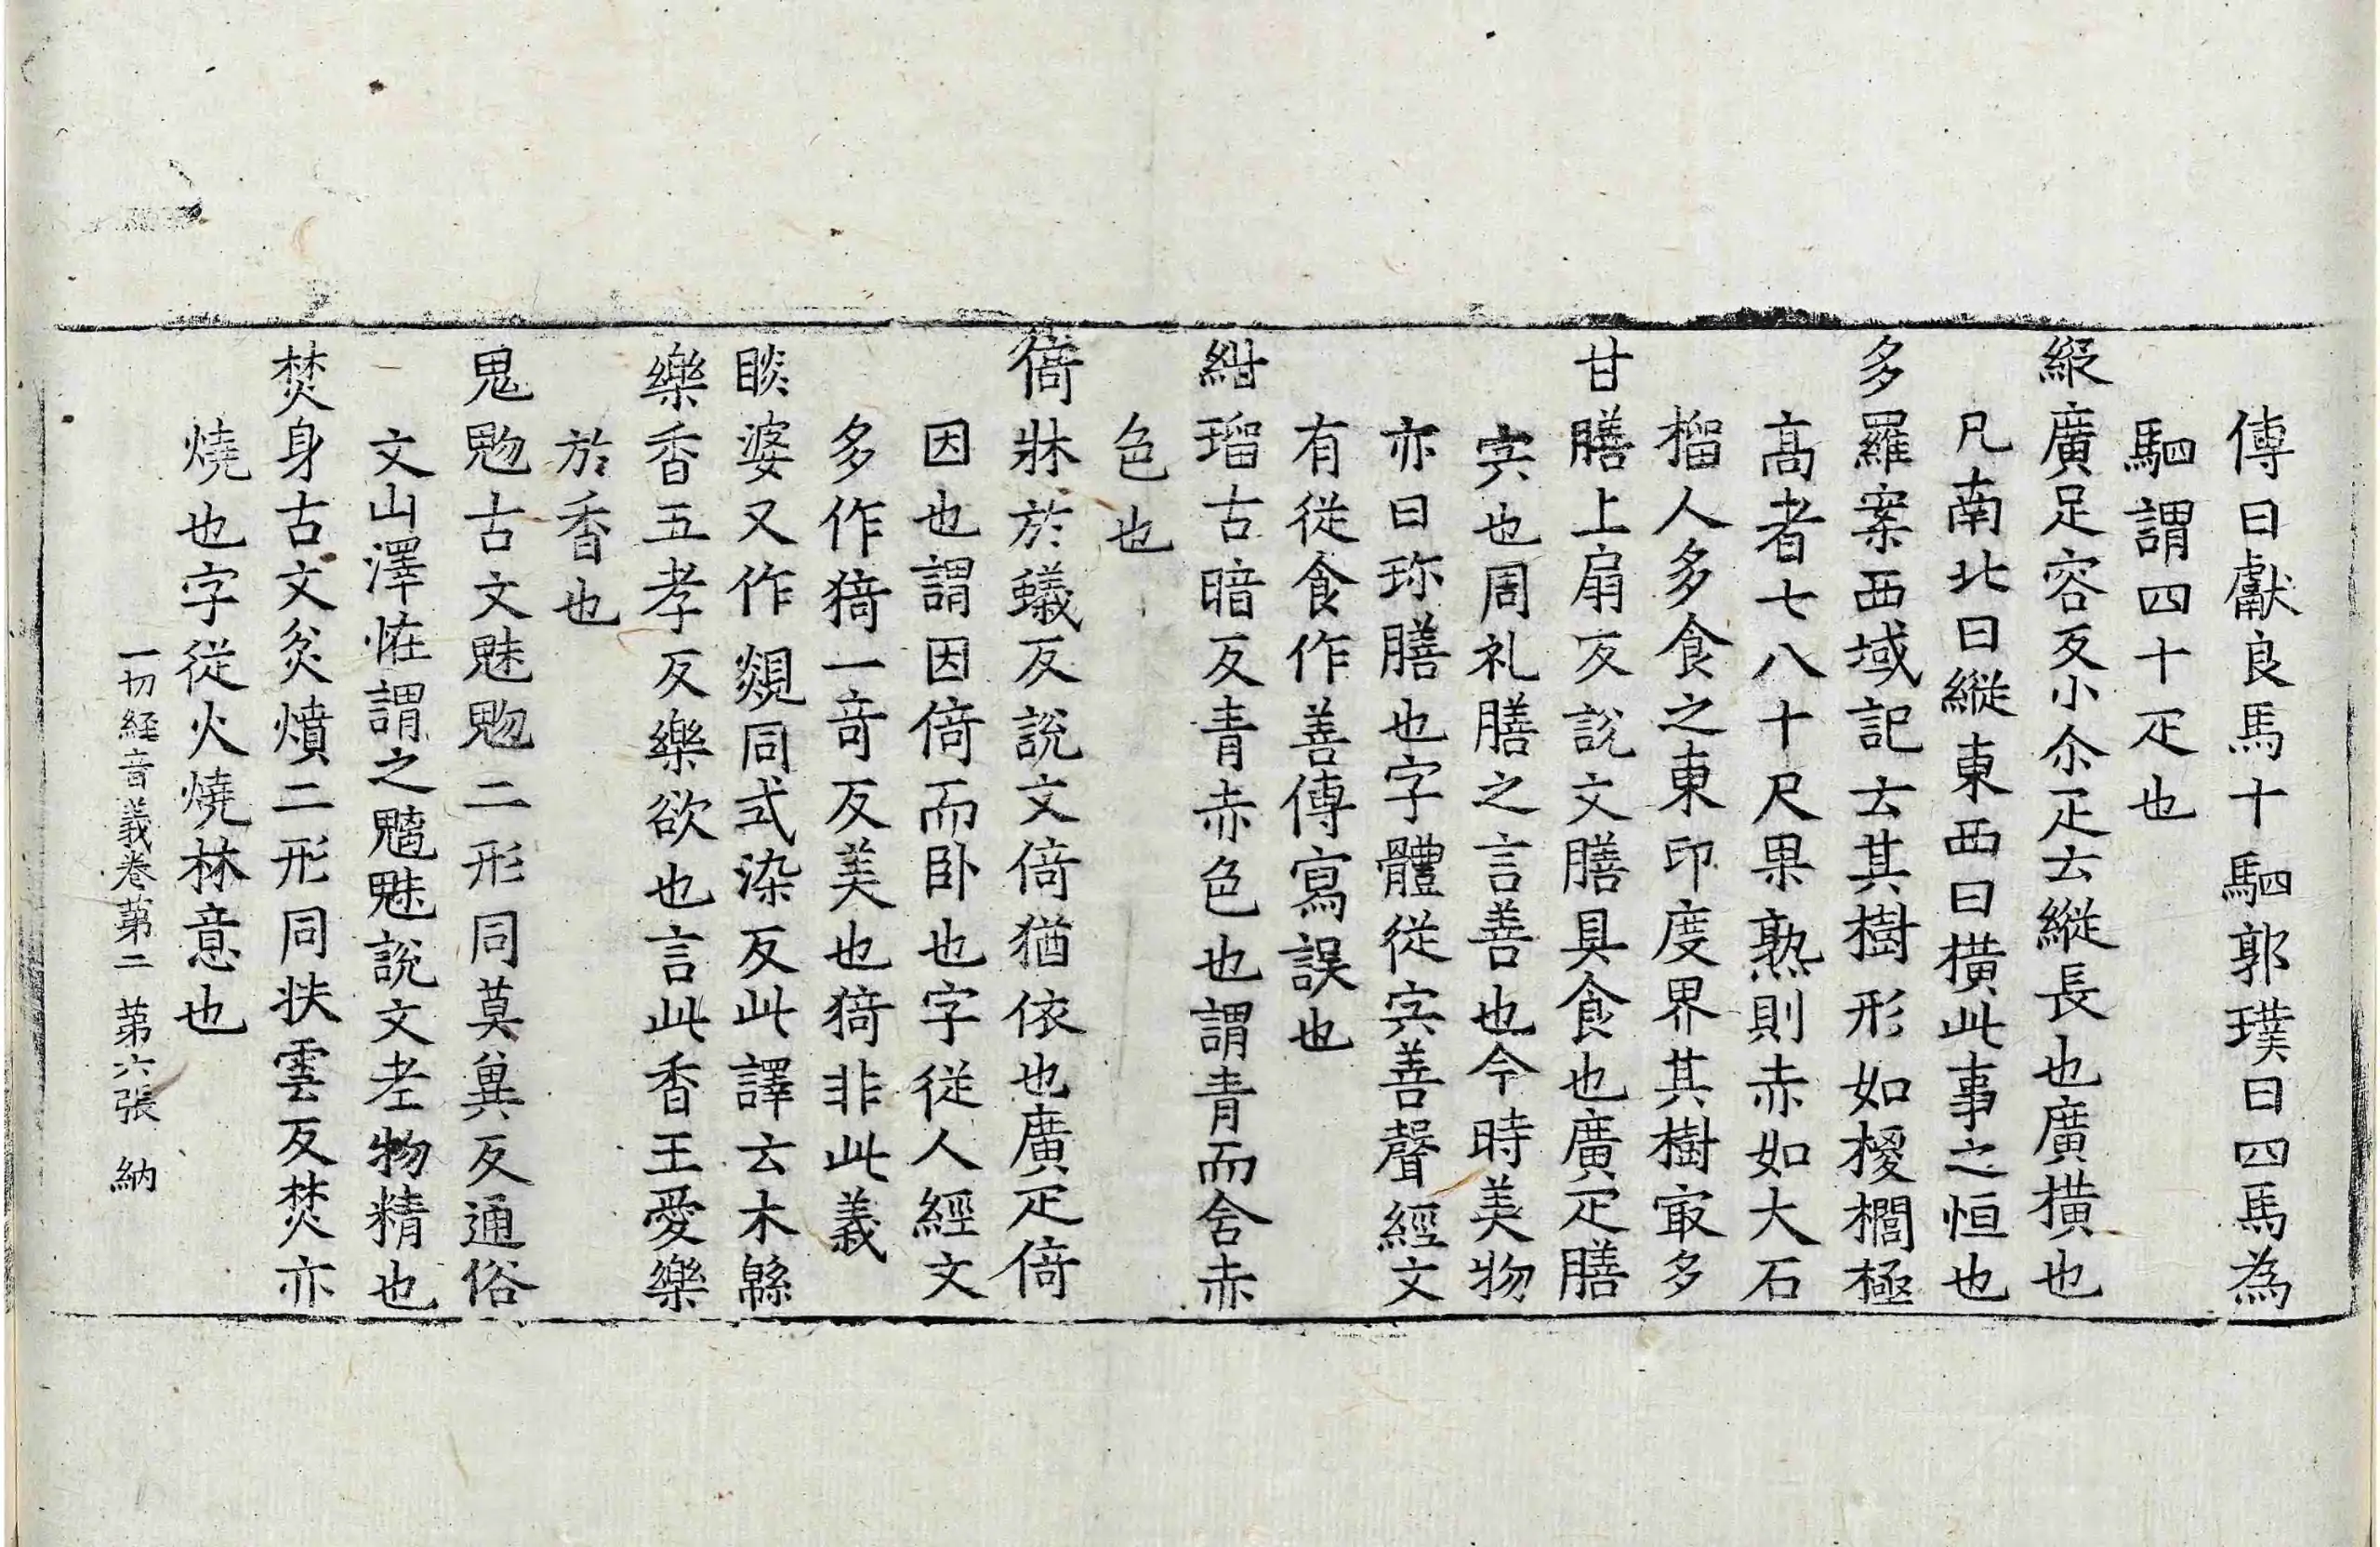 傳曰獻良馬十駟郭璞曰四馬為
駟謂四十疋也
縱廣足容反小尒疋云縱長也廣橫也
凡南北曰縱東西曰橫此事之恒也
多羅案西域記云其樹形如椶櫚極
髙者七八十尺果熟則赤如大石
榴人多食之東印度界其樹㝡多
甘膳上扇反說文膳具食也廣疋膳
宍也周礼膳之言善也今時美物
亦曰珎膳也字體從宍善聲經文
有從食作善傳寫誤也
紺瑠古暗反青赤色也謂青而含赤
色也
倚牀於蟻反說文倚猶依也廣疋倚
因也謂因倚而卧也字從人經文
多作猗一竒反美也猗非此義
睒婆又作覢同式染反此譯云木緜
樂香五孝反樂欲也言此香王愛樂
於香也
鬼魅古文魅鬽二形同莫兾反通俗
文山澤恠謂之魑魅說文老物精也
焚身古文炃燌二形同扶雲反焚亦
燒也字從火燒林意也
一切経音義卷第二 第六張 納